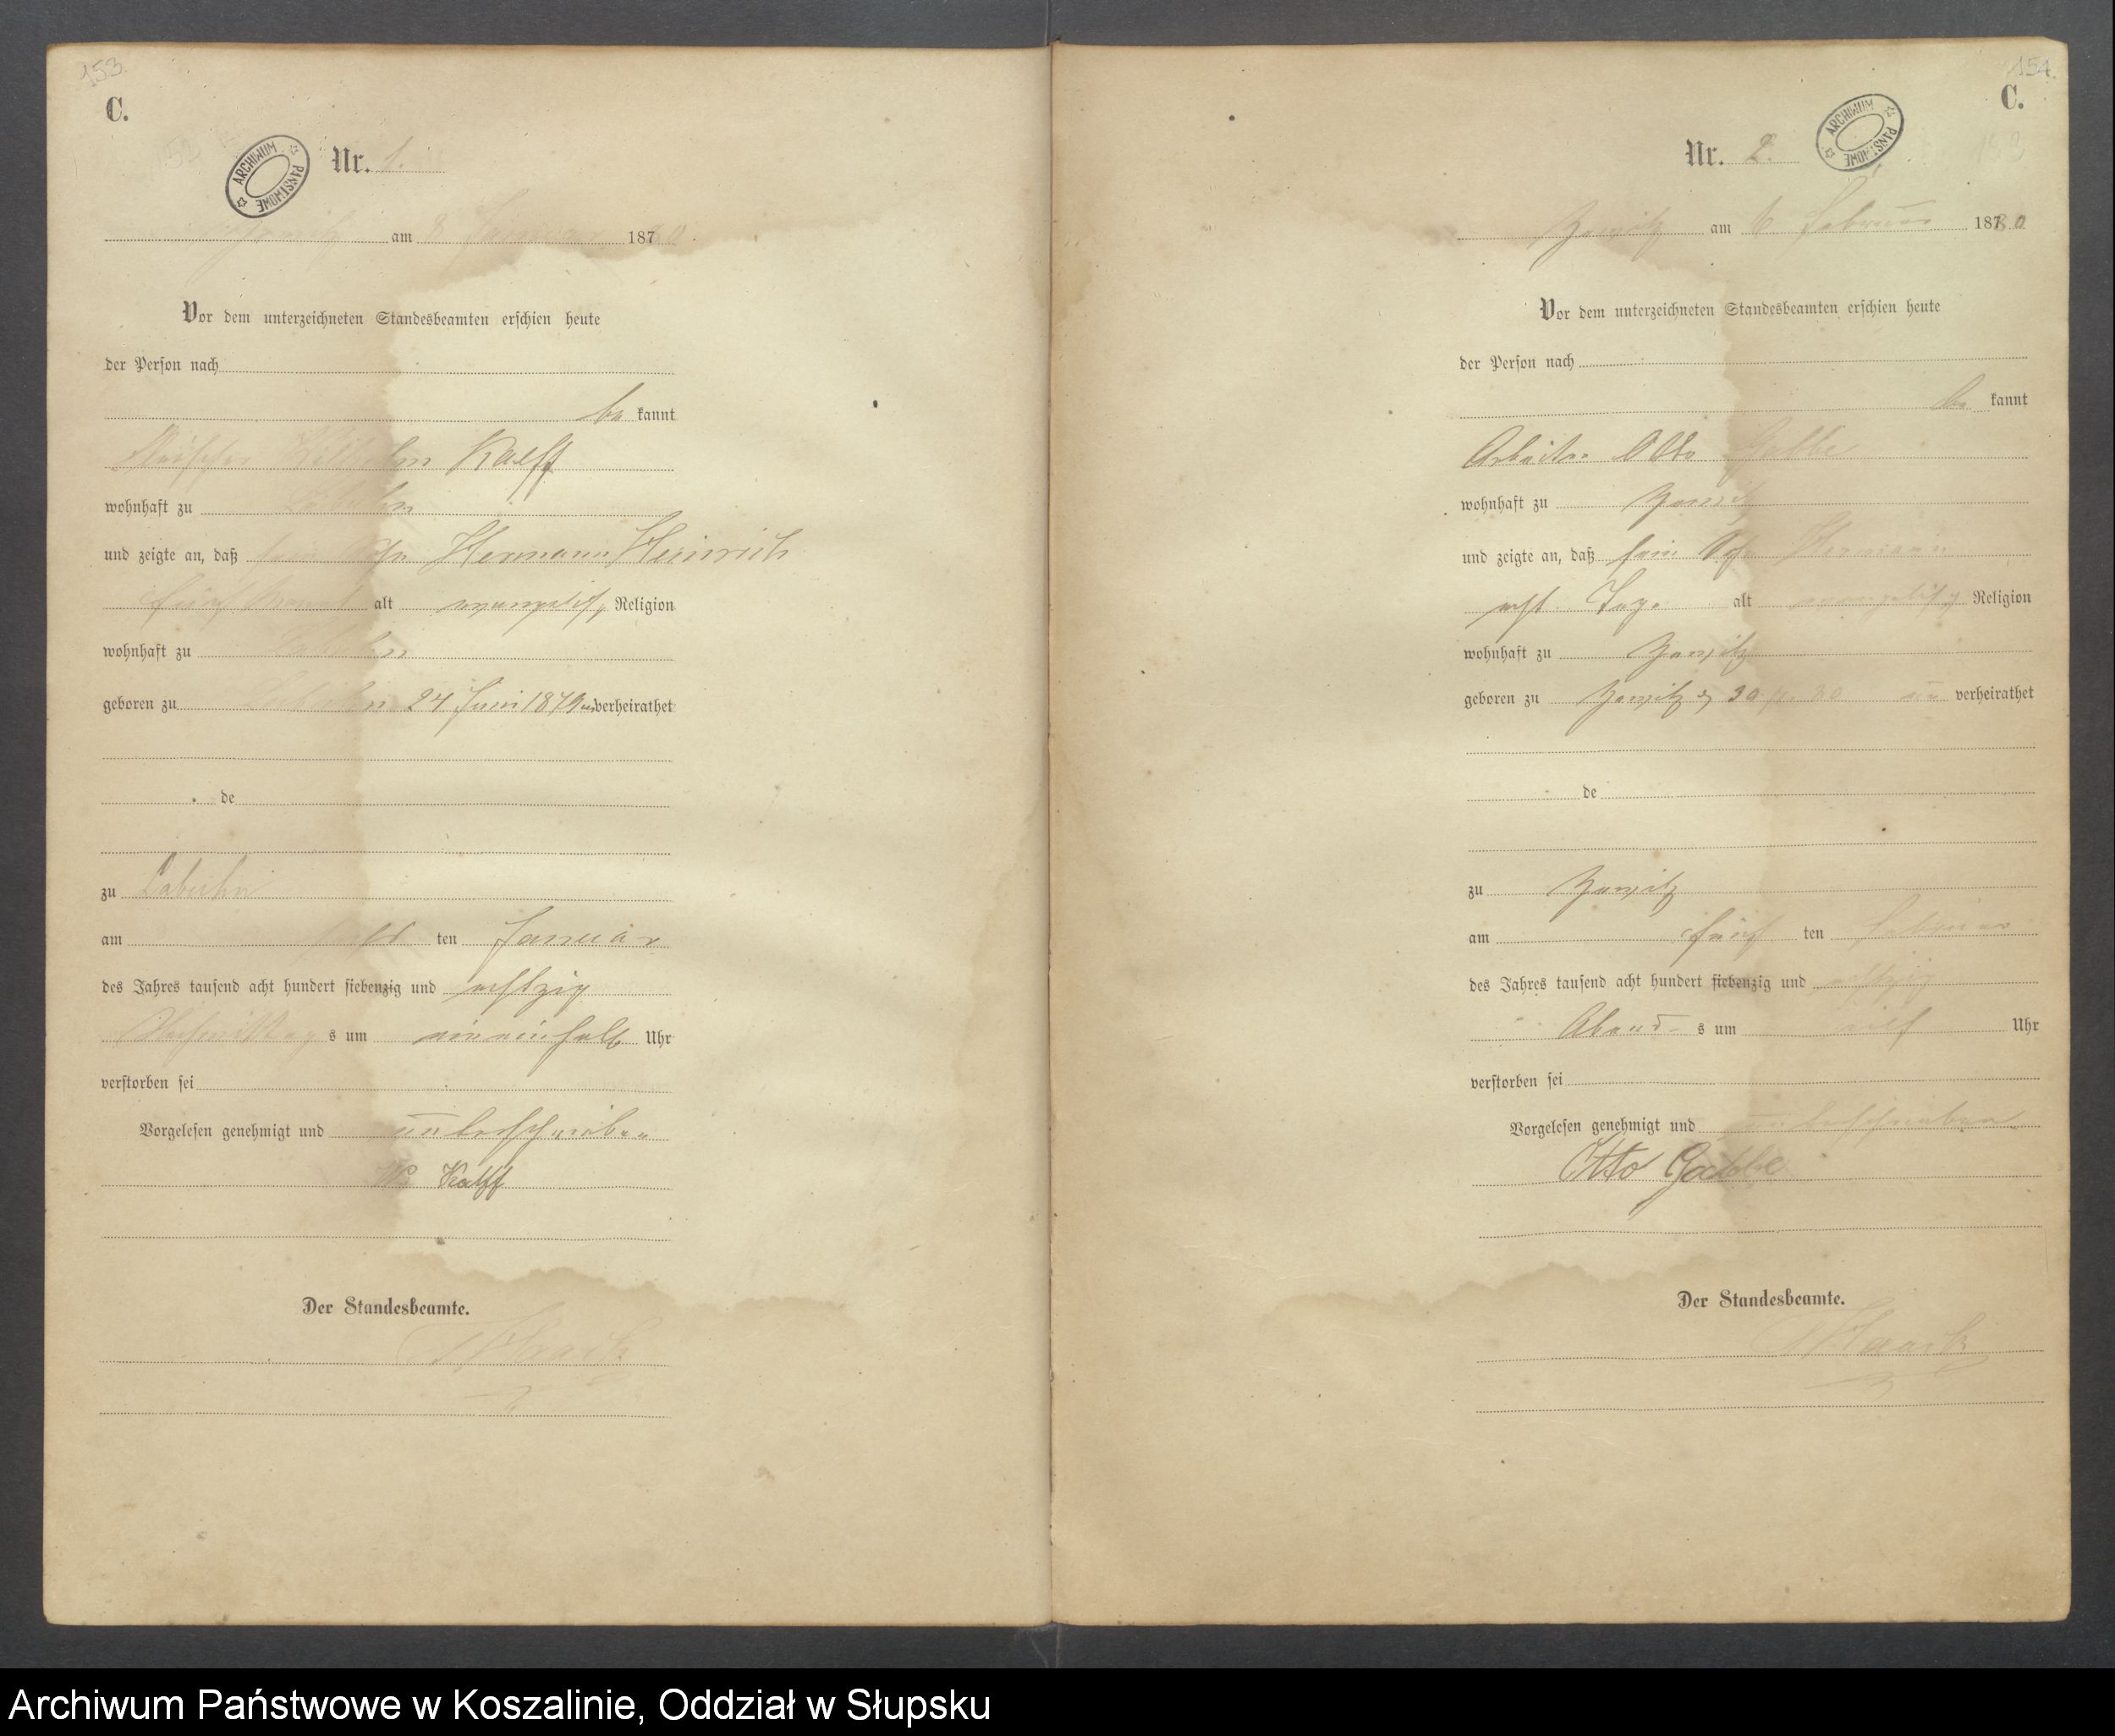 153.
C.
ARCHIWUM PAŃSTWOWE
Nr. 1.
am 8 Januar 1880.
Vor dem unterzeichneten Standesbeamten erschien heute
der Person nach
be kannt
Wilhelm Kalff
wohnhaft zu Labuhn
und zeigte an, daß sein Sohn Hermann Heinrich
fünf Monat alt evangelischer Religion
wohnhaft zu Labuhn
geboren zu Labuhn 24 Juni 1879 unverheirathet
de
zu Labuhn
am ten Januar
des Jahres tausend acht hundert siebenzig und achtzig
Nachmittags um ein ein halb Uhr
verstorben sei
Vorgelesen genehmigt und unterschrieben
W. Kalff
Der Standesbeamte.
154.
C.
ARCHIWUM PAŃSTWOWE
Nr. 2.
am 6 Februar 1880
Vor dem unterzeichneten Standesbeamten erschien heute
der Person nach
be kannt
Arbeiter Otto Gabbe
wohnhaft zu
und zeigte an, daß sein Sohn Hermann
acht Tage alt evangelischer Religion
wohnhaft zu
geboren zu 30 80 un verheirathet
de
zu
am fünf ten Februar
des Jahres tausend acht hundert siebenzig und achtzig
Abends um elf Uhr
verstorben sei
Vorgelesen genehmigt und unterschrieben
Otto Gabbe
Der Standesbeamte.
Archiwum Państwowe w Koszalinie, Oddział w Słupsku